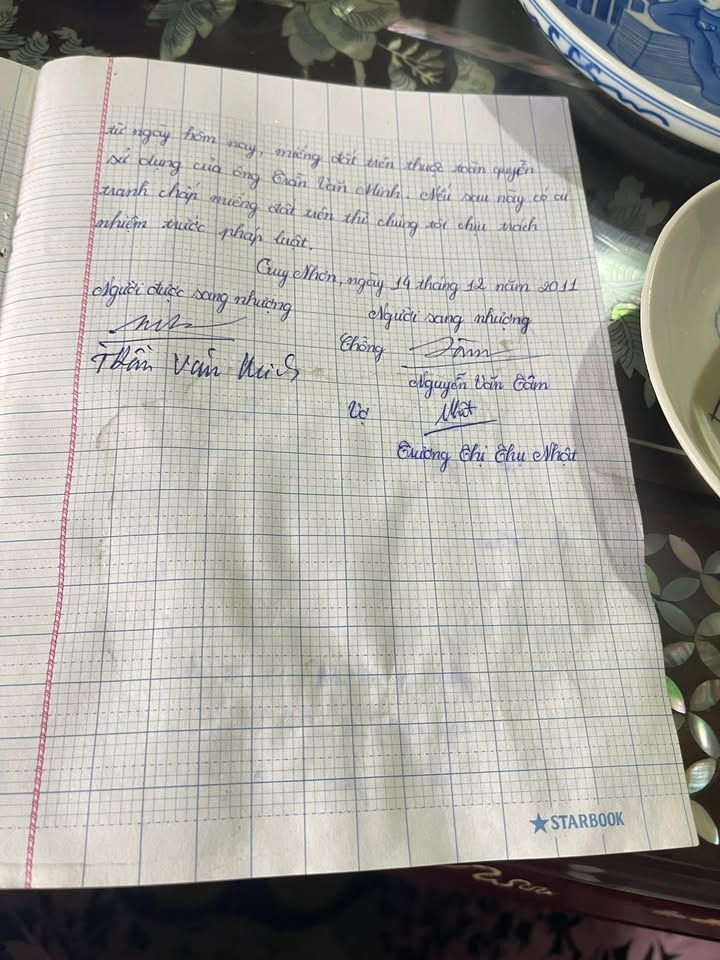 từ ngày hôm nay, miếng đất trên thuộc toàn quyền
sử dụng của ông Trần Văn Minh. Nếu sau này có ai
tranh chấp miếng đất trên thì chúng tôi chịu trách
nhiệm trước pháp luật.
Quy Nhơn, ngày 14 tháng 12 năm 2011
Người được sang nhượng
Người sang nhượng
Chồng
Trần Văn Minh
Nguyễn Văn Tâm
Vợ
Nhật
Trương Thị Thu Nhật
STARBOOK